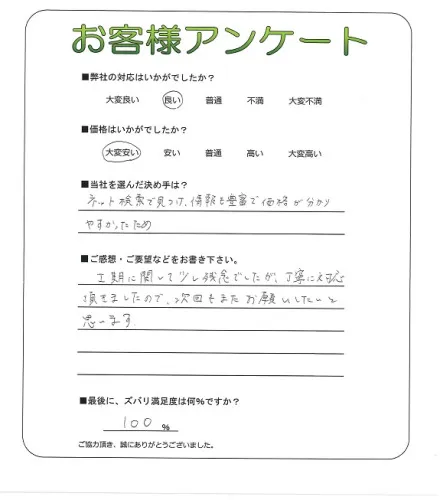 お客様アンケート
■弊社の対応はいかがでしたか？
大変良い 良い 普通 不満 大変不満
■価格はいかがでしたか？
大変安い 安い 普通 高い 大変高い
■当社を選んだ決め手は？
ネット検索で見つけ、情報も豊富で価格が分かり
やすかったため
■ご感想・ご要望などをお書き下さい。
工期に関して少し残念でしたが、丁寧に対応
頂きましたので、次回もまたお願いしたいと
思います。
■最後に、ズバリ満足度は何%ですか？
100 %
ご協力頂き、誠にありがとうございました。